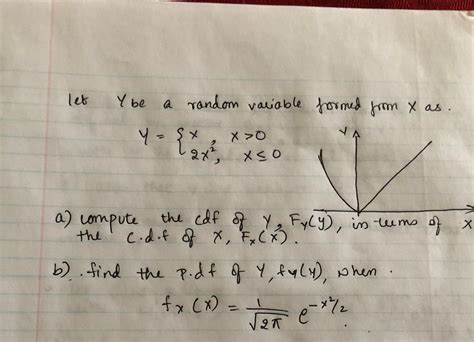 let Y be a random variable formed from X as.
Y = { x , x>0
2x², x≤0
Y
X
a) compute the cdf of Y, Fy(y), in terms of
the c.d.f of X, Fx(x).
b). find the p.d.f of Y, fy(y), when.
fx(x) = 1/√2π e^-x²/2.